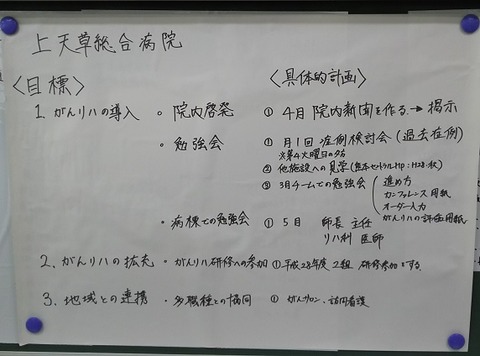 上天草総合病院
〈目標〉 〈具体的計画〉
1. がんリハの導入 ・院内啓発 ① 4月 院内新聞を作る → 掲示
・勉強会 ① 月1回 症例検討会 (過去症例)
※第4火曜日の夕方
② 他施設への見学 (熊本セントラルHP:H28.秋)
③ 3月チームでの勉強会 進め方
カンファレンス用紙
オーダー入力
がんリハの評価用紙
・病棟での勉強会 ① 5月 師長 主任
リハ科 医師
2. がんリハの拡充 ・がんリハ研修への参加 ① 平成28年度 2組 研修参加とする.
3. 地域との連携 ・多職種との協同 ① がんサロン・訪問看護